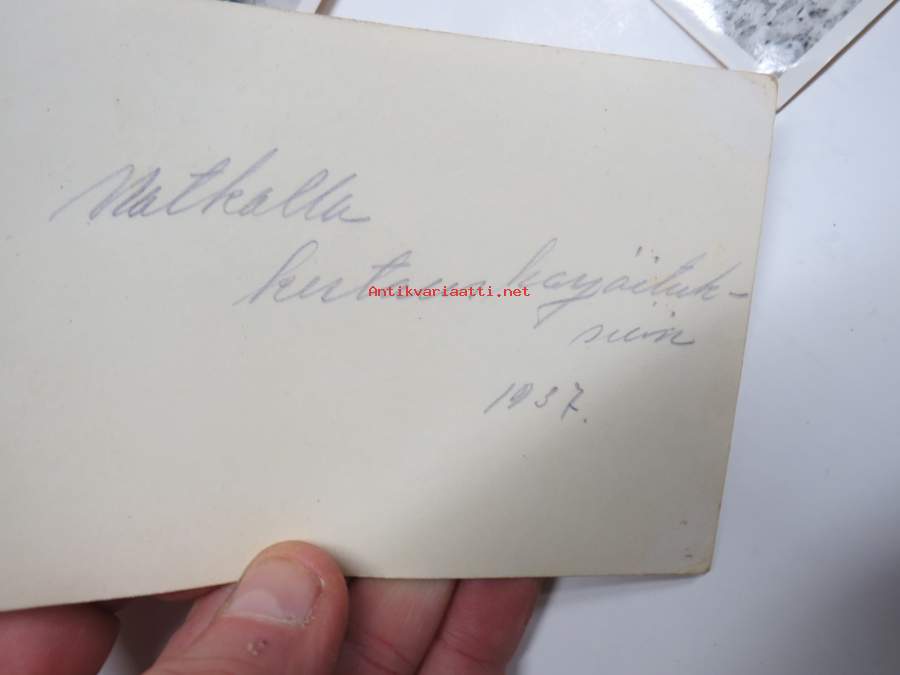 Matkalla
kertausharjoituk-
siin
1937.
Antikvariaatti.net